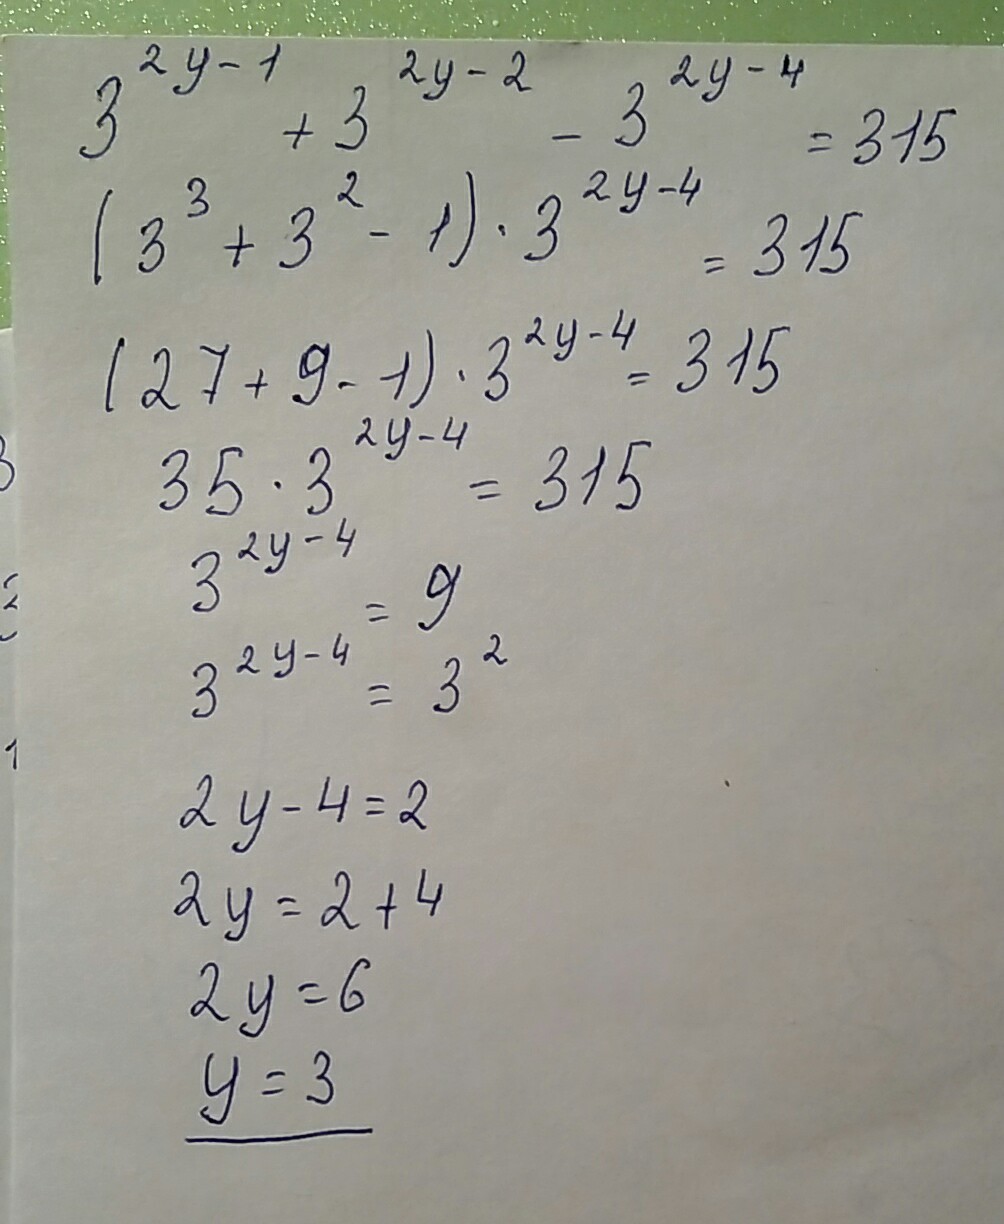 3^{2y-1} + 3^{2y-2} - 3^{2y-4} = 315
(3^3 + 3^2 - 1) · 3^{2y-4} = 315
(27 + 9 - 1) · 3^{2y-4} = 315
35 · 3^{2y-4} = 315
3^{2y-4} = 9
3^{2y-4} = 3^2
2y - 4 = 2
2y = 2 + 4
2y = 6
y = 3